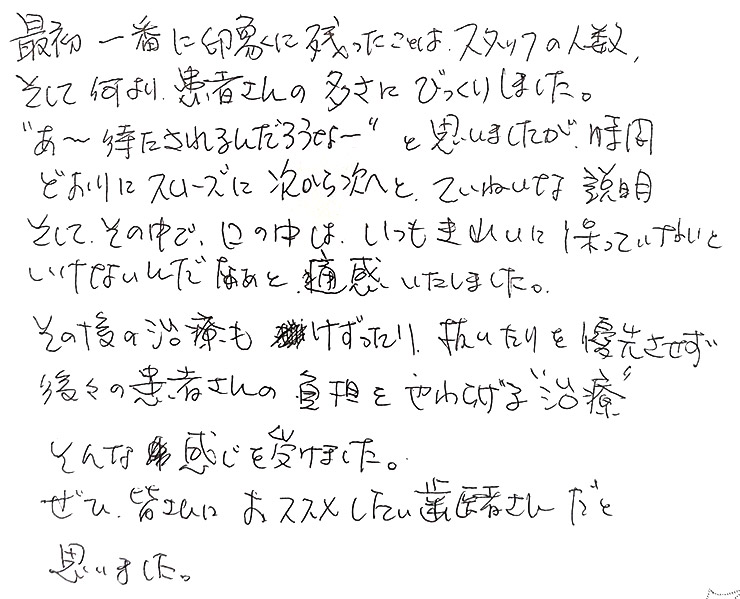 最初一番に印象に残ったことは、スタッフの人数、
そして何より、患者さんの多さにびっくりしました。
"あ～待たされるんだろうな～" と思いましたが、時間
どおりにスムーズに次から次へと、ていねいな説明
そして、その中で、口の中は、いつもきれいに保っていないと
いけないんだなぁと、痛感いたしました。
その後の治療も けずったり、抜いたりを優先させず
後々の患者さんの負担をやわらげる"治療"
そんな感じを受けました。
ぜひ、皆さんにおススメしたい歯医者さんだと
思いました。